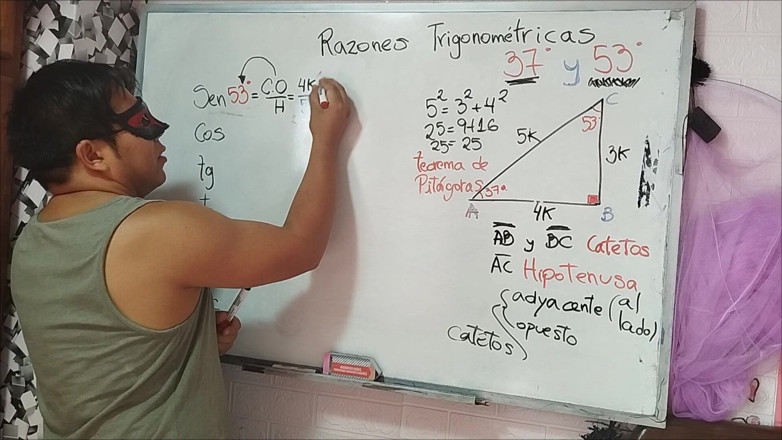 Razones Trigonométricas
37° y 53°
Sen 53° = C.O = 4K
H
Cos
tg
5² = 3² + 4²
25 = 9+16
25 = 25
teorema de
Pitágoras
C
53°
5K
3K
37°
A
4K
B
AB y BC Catetos
AC Hipotenusa
Catetos
adyacente (al lado)
opuesto